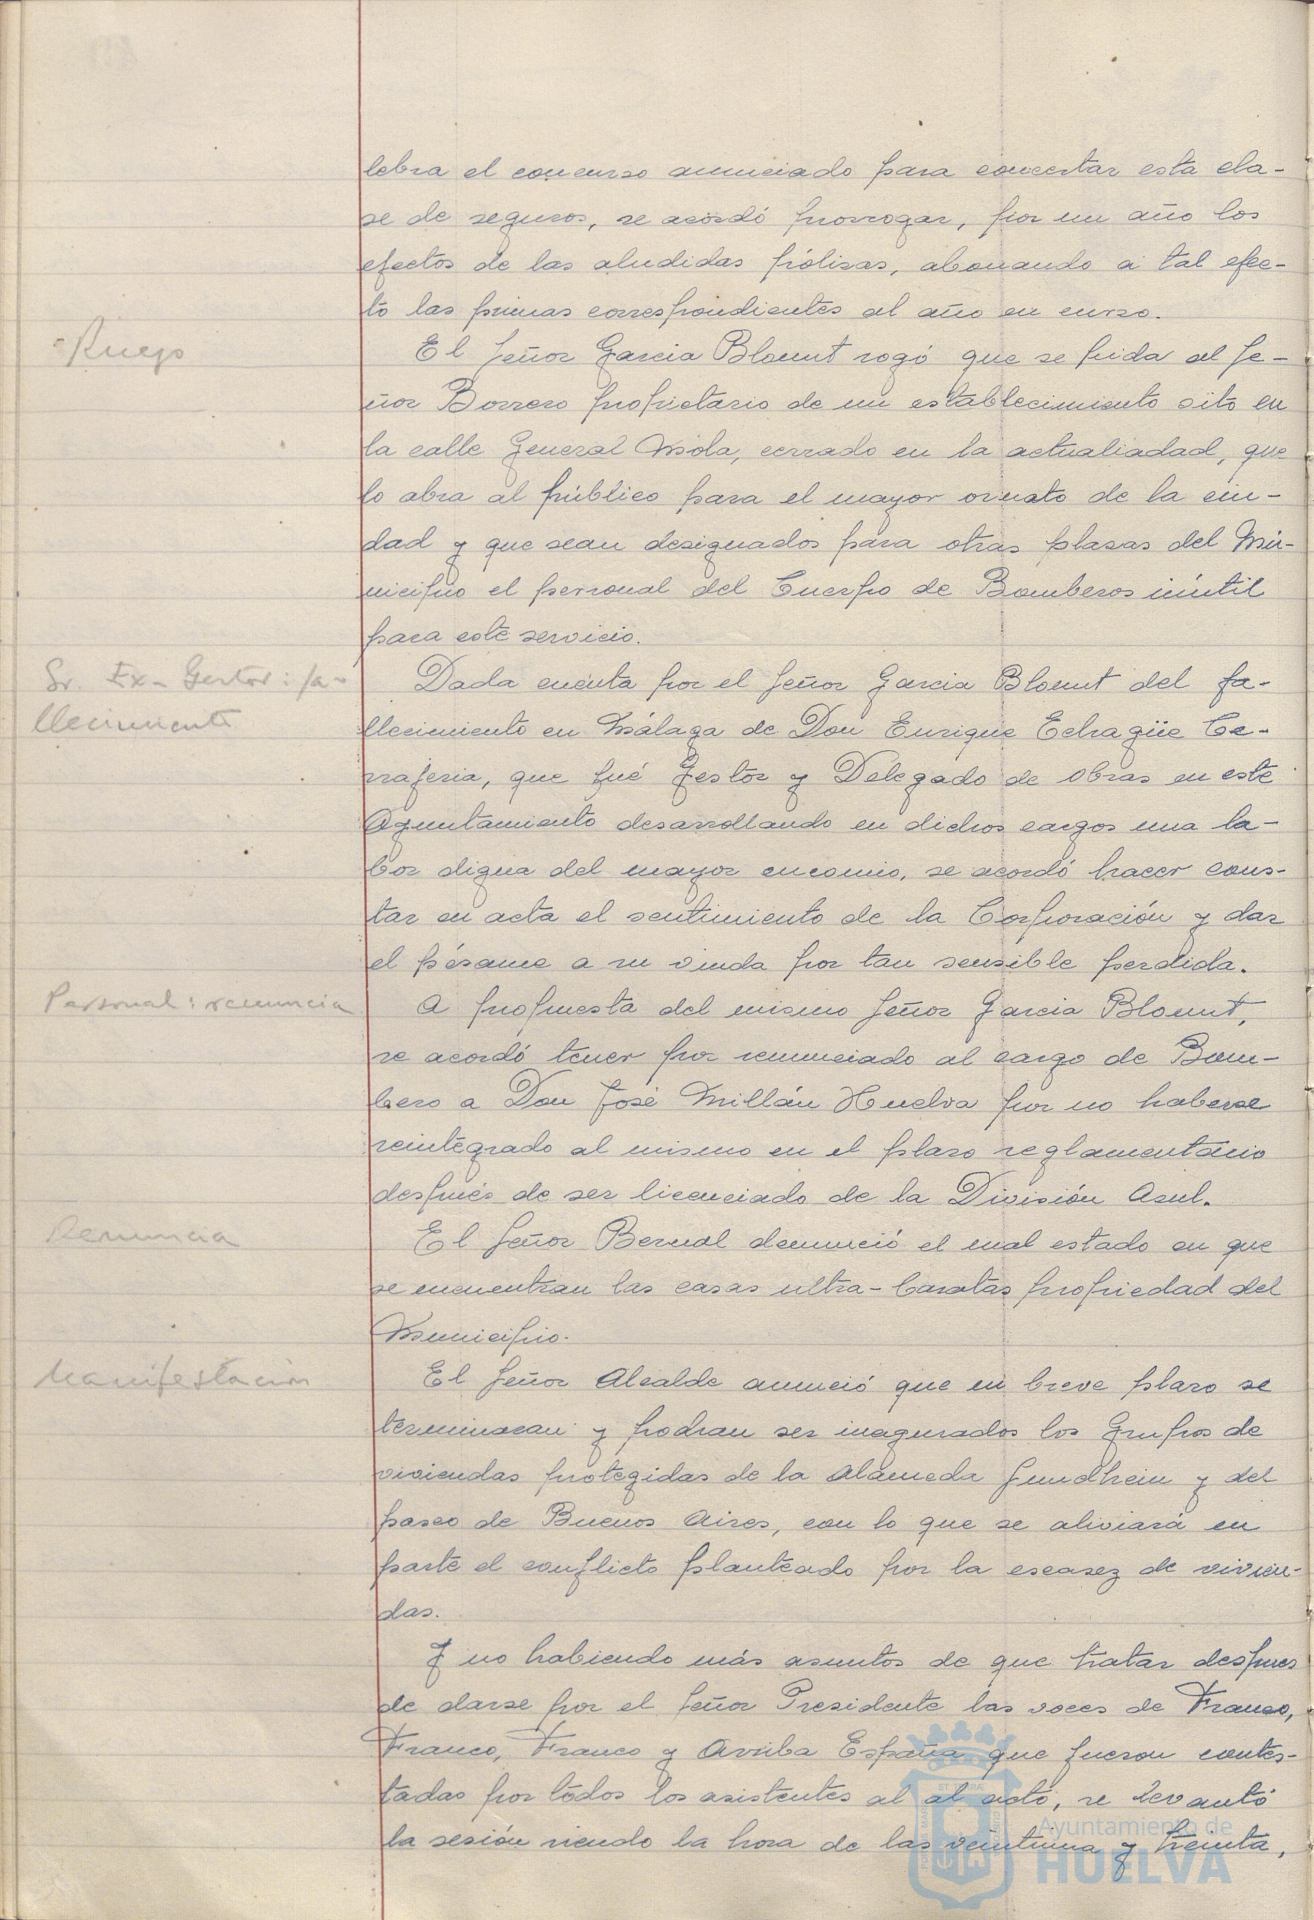 lebra el concurso anunciado para concertar esta cla-
se de seguros, se acordó prorrogar, por un año los
efectos de las aludidas pólizas, abonando a tal efec-
to las primas correspondientes al año en curso.
Ruego
El Señor Garcia Blount rogó que se pida al Se-
ñor Borrero propietario de un establecimiento sito en
la calle General Mola, cerrado en la actualiadad, que
lo abra al público para el mayor ornato de la ciu-
dad y que sean designados para otras plasas del Mu-
nicipio el personal del Cuerpo de Bomberos inútil
para este servicio.
Sr. Ex-Gestor: fa-
llecimiento
Dada cuenta por el Señor Garcia Blount del fa-
llecimiento en Málaga de Don Enrique Echagüe Ce-
rrajeria, que fué Gestor y Delegado de obras en este
Ayuntamiento desarrollando en dichos cargos una la-
bor digna del mayor encomio, se acordó hacer cons-
tar en acta el sentimiento de la Corporación y dar
el pésame a su viuda por tan sensible perdida.
Personal: renuncia
A propuesta del mismo Señor Garcia Blount,
se acordó tener por renunciado al cargo de Bom-
bero a Don José Millán Huelva por no haberse
reintegrado al mismo en el plaso reglamentario
despúes de ser licenciado de la División Asul.
Denuncia
El Señor Bernal denunció el mal estado en que
se encuentran las casas ultra-baratas propiedad del
Municipio.
Manifestación
El Señor Alcalde anunció que en breve plaso se
terminaran y podran ser inagurados los Grupos de
viviendas protegidas de la Alameda Sundhein y del
paseo de Buenos Aires, con lo que se aliviará en
parte el conflicto planteado por la escasez de vivien-
das.
Y no habiendo más asuntos de que tratar despues
de darse por el Señor Presidente las voces de Franco,
Franco, Franco y Arriba España que fueron contes-
tadas por todos los asistentes al al acto, se levantó
la sesión siendo la hora de las veintiuna y treinta,
Ayuntamiento de
HUELVA